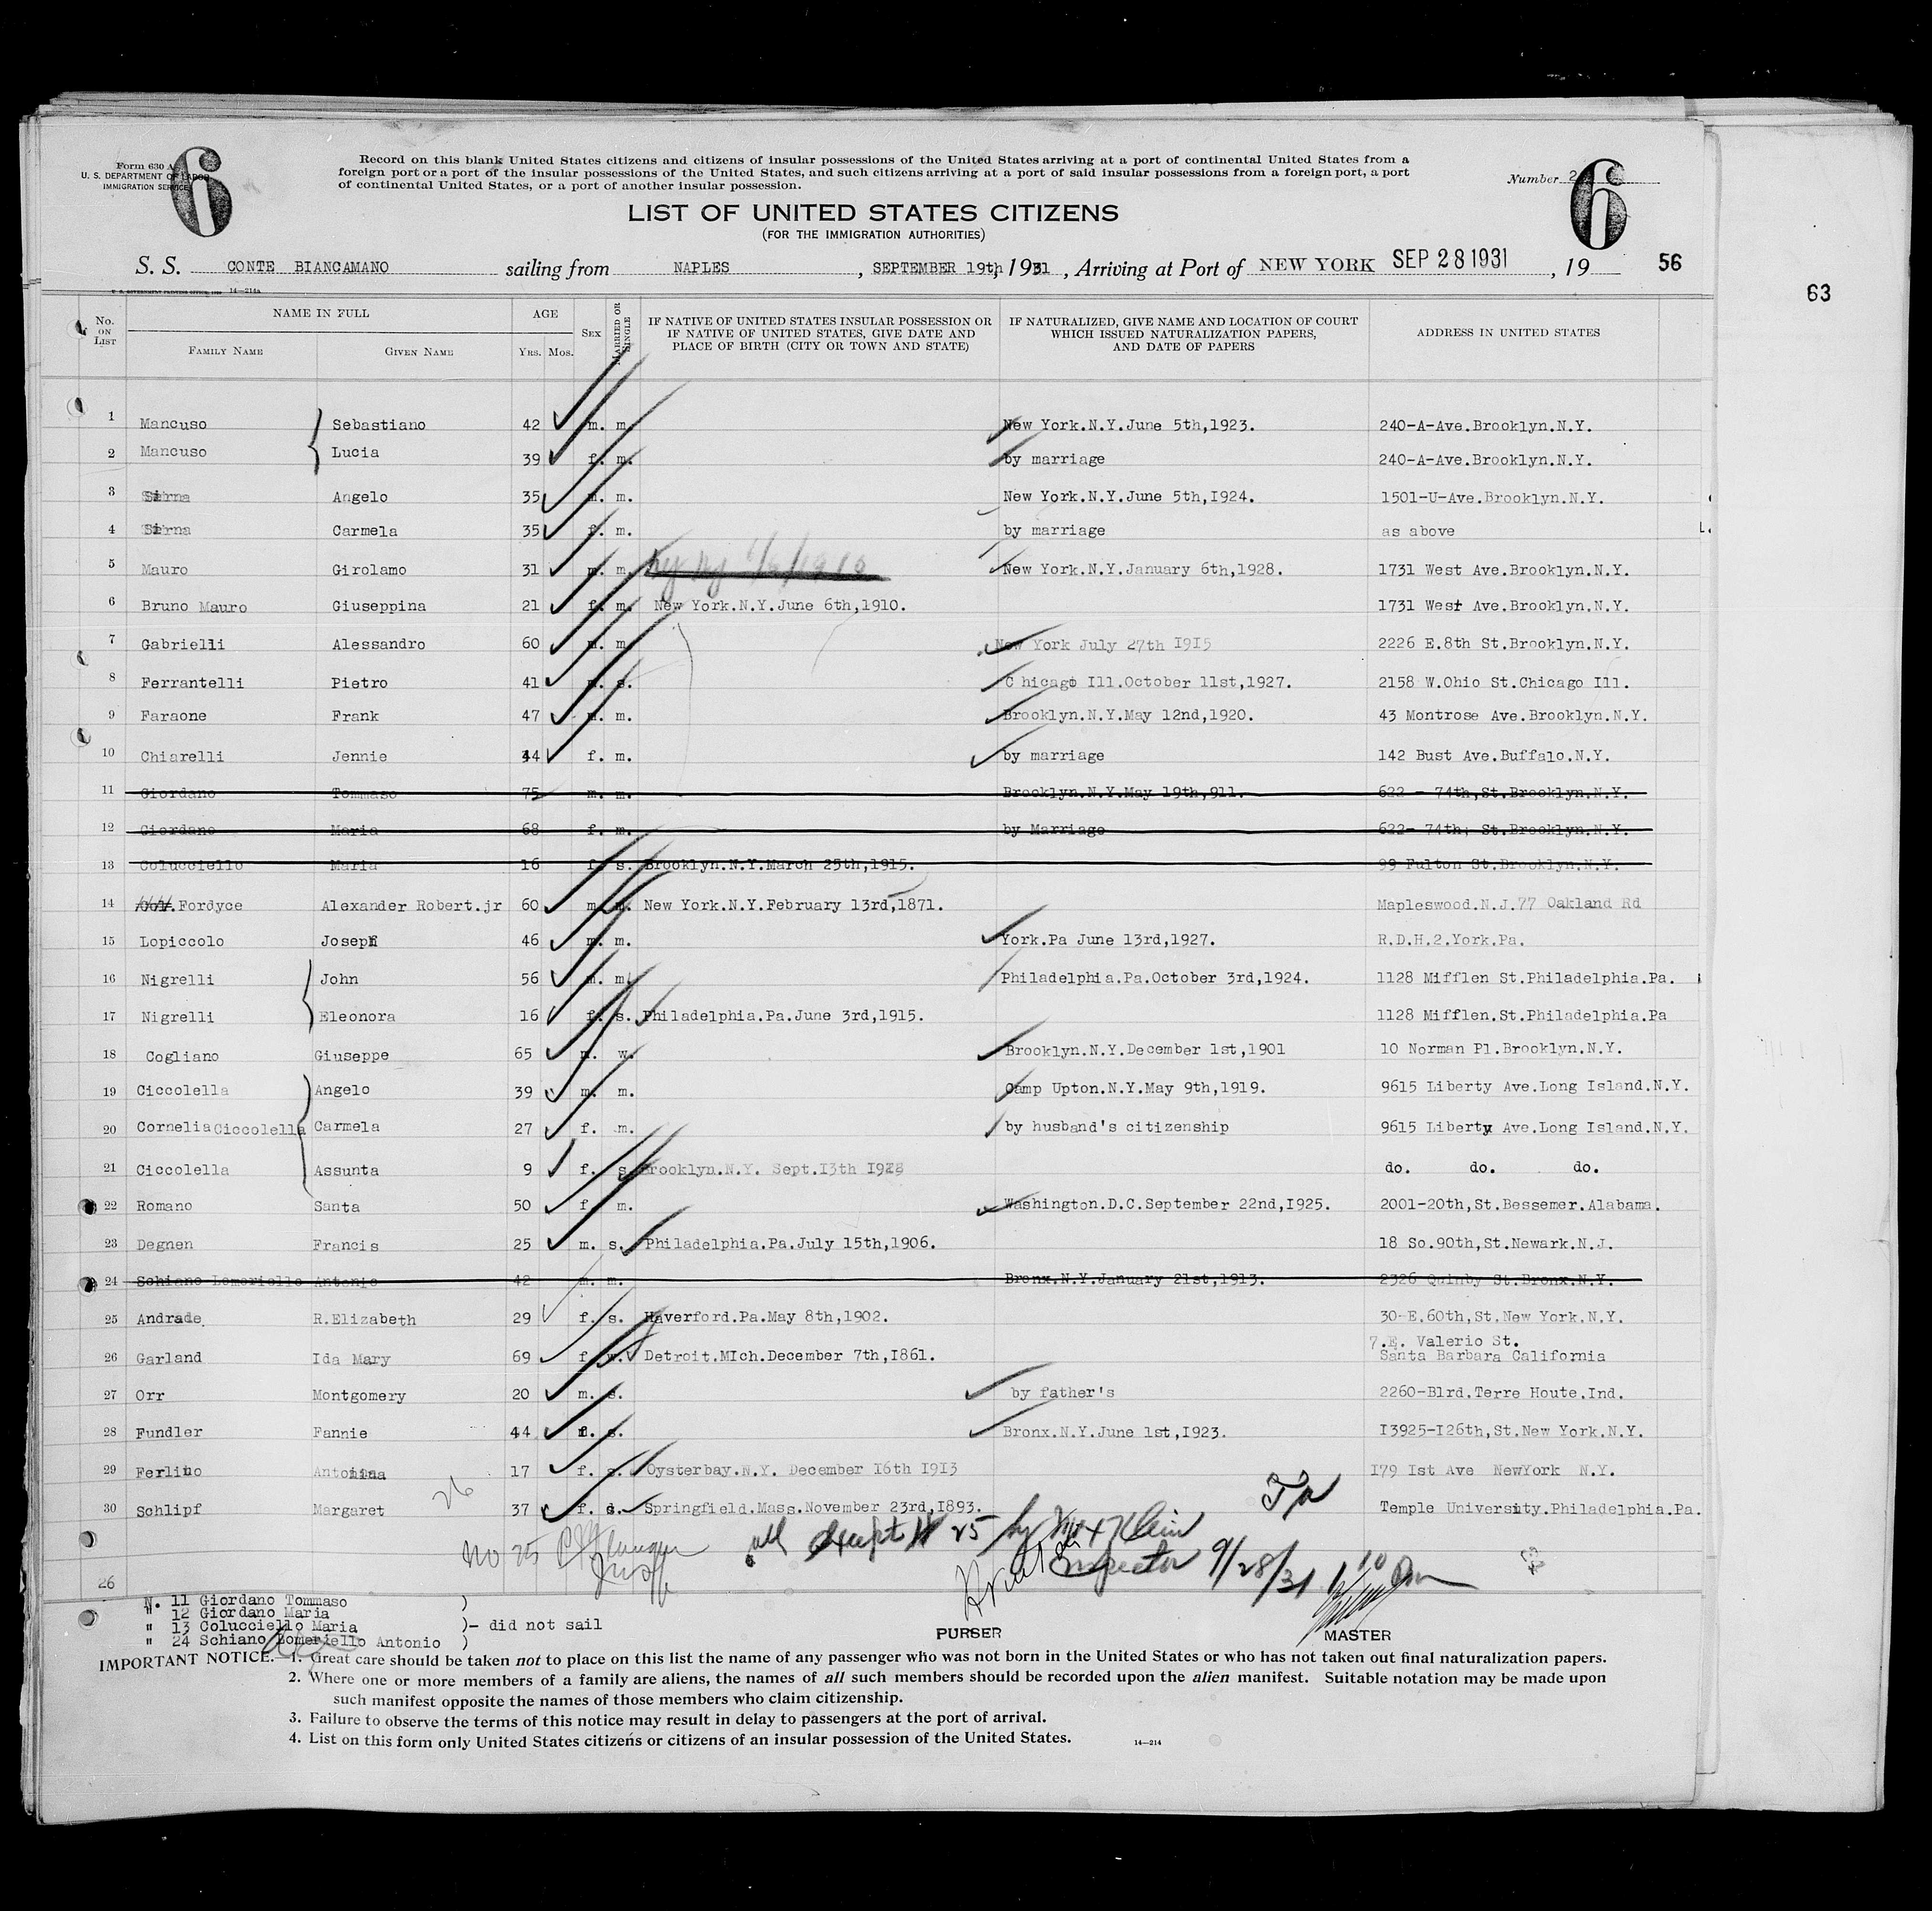 Form 630 A
U. S. DEPARTMENT OF LABOR
IMMIGRATION SERVICE
6
Record on this blank United States citizens and citizens of insular possessions of the United States arriving at a port of continental United States from a
foreign port or a port of the insular possessions of the United States, and such citizens arriving at a port of said insular possessions from a foreign port, a port
of continental United States, or a port of another insular possession.
Number 2
6
LIST OF UNITED STATES CITIZENS
(FOR THE IMMIGRATION AUTHORITIES)
S. S. CONTE BIANCAMANO sailing from NAPLES , SEPTEMBER 19th, 1931 , Arriving at Port of NEW YORK SEP 28 1931 , 19 56
63
U. S. GOVERNMENT PRINTING OFFICE 14—214a
No. ON LIST NAME IN FULL AGE SEX MARRIED OR SINGLE IF NATIVE OF UNITED STATES INSULAR POSSESSION OR IF NATIVE OF UNITED STATES, GIVE DATE AND PLACE OF BIRTH (CITY OR TOWN AND STATE) IF NATURALIZED, GIVE NAME AND LOCATION OF COURT WHICH ISSUED NATURALIZATION PAPERS, AND DATE OF PAPERS ADDRESS IN UNITED STATES
FAMILY NAME GIVEN NAME YRS. MOS.
1 Mancuso Sebastiano 42 m. m. New York.N.Y.June 5th,1923. 240-A-Ave.Brooklyn.N.Y.
2 Mancuso Lucia 39 f. m. by marriage 240-A-Ave.Brooklyn.N.Y.
3 Angelo 35 m. m. New York.N.Y.June 5th,I924. 1501-U-Ave.Brooklyn.N.Y.
4 Carmela 35 f. m. by marriage as above
5 Mauro Girolamo 31 m. m. New York.N.Y.January 6th,1928. 1731 West Ave.Brooklyn.N.Y.
6 Bruno Mauro Giuseppina 21 f. m. New York.N.Y.June 6th,1910. 1731 West Ave.Brooklyn.N.Y.
7 Gabrielli Alessandro 60 m. m. New York July 27th I915 2226 E.8th St.Brooklyn.N.Y.
8 Ferrantelli Pietro 41 m. s. C hicago Ill.October 11st,1927. 2158 W.Ohio St.Chicago Ill.
9 Faraone Frank 47 m. m. Brooklyn.N.Y.May 12nd,1920. 43 Montrose Ave.Brooklyn.N.Y.
10 Chiarelli Jennie 44 f. m. by marriage 142 Bust Ave.Buffalo.N.Y.
11 Giordano Tommaso 75 m. m. Brooklyn.N.Y.May 19th,911. 622 - 74th,St.Brooklyn.N.Y.
12 Giordano Maria 68 f. m. by Marriage 622- 74th, St.Brooklyn.N.Y.
13 Colucciello Maria 16 f. s. Brooklyn.N.Y.March 25th,1915. 99 Fulton St.Brooklyn.N.Y.
14 Fordyce Alexander Robert.jr 60 m. m. New York.N.Y.February 13rd,1871. Mapleswood.N.J.77 Oakland Rd
15 Lopiccolo Joseph 46 m. m. York.Pa June 13rd,1927. R.D.H.2.York.Pa.
16 Nigrelli John 56 m. m. Philadelphia.Pa.October 3rd,1924. 1128 Mifflen St.Philadelphia.Pa.
17 Nigrelli Eleonora 16 f. s. Philadelphia.Pa.June 3rd,1915. 1128 Mifflen.St.Philadelphia.Pa
18 Cogliano Giuseppe 65 m. w. Brooklyn.N.Y.December 1st,1901 10 Norman Pl.Brooklyn.N.Y.
19 Ciccolella Angelo 39 m. m. Camp Upton.N.Y.May 9th,1919. 9615 Liberty Ave.Long Island.N.Y.
20 Cornelia Ciccolella Carmela 27 f. m. by husband's citizenship 9615 Liberty Ave.Long Island.N.Y.
21 Ciccolella Assunta 9 f. s. Brooklyn.N.Y. Sept.I3th do. do. do.
22 Romano Santa 50 f. m. Washington.D.C.September 22nd,I925. 2001-20th,St.Bessemer.Alabama.
23 Degnen Francis 25 m. s. Philadelphia.Pa.July 15th,1906. 18 So.90th,St.Newark.N.J.
24 Schiano Lomoriello Antonio 42 m. m. Bronx.N.Y.January 21st,1913. 2326 Quinby St.Bronx.N.Y.
25 Andrade R.Elizabeth 29 f. s. Haverford.Pa.May 8th,1902. 30-E.60th,St.New York.N.Y.
26 Garland Ida Mary 69 f. w. Detroit.MIch.December 7th,I861. 7.E. Valerio St. Santa Barbara California
27 Orr Montgomery 20 m. s. by father's 2260-Blrd.Terre Houte.Ind.
28 Fundler Fannie 44 f. s. Bronx.N.Y.June 1st,I923. I3925-I26th,St.New York.N.Y.
29 Ferlito Antonina 17 f. s. Oysterbay.N.Y. December I6th I9I3 I79 Ist Ave NewYork N.Y.
30 Schlipf Margaret 37 f. s. Springfield.Mass.November 23rd,I893. Temple University.Philadelphia.Pa.
26
No 25
all except # 25 by
Inspector 9/28/31
26
N. 11 Giordano Tommaso )
" 12 Giordano Maria
" 13 Colucciello Maria )- did not sail
" 24 Schiano Lomeriello Antonio )
PURSER MASTER
IMPORTANT NOTICE.—1. Great care should be taken not to place on this list the name of any passenger who was not born in the United States or who has not taken out final naturalization papers.
2. Where one or more members of a family are aliens, the names of all such members should be recorded upon the alien manifest. Suitable notation may be made upon
such manifest opposite the names of those members who claim citizenship.
3. Failure to observe the terms of this notice may result in delay to passengers at the port of arrival.
4. List on this form only United States citizens or citizens of an insular possession of the United States.
14—214